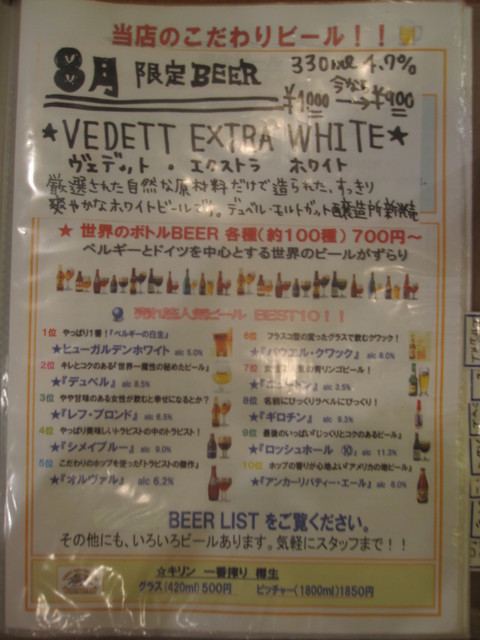 当店のこだわりビール！！
8月 限定BEER 330ml 4.7%
今なら
¥1000 → ¥900
★VEDETT EXTRA WHITE★
ヴェデット・エクストラ ホワイト
厳選された自然な原材料だけで造られた、すっきり
爽やかなホワイトビールです。デュベル・モルトガット醸造所新発売
★ 世界のボトルBEER 各種(約100種) 700円～
ベルギーとドイツを中心とする世界のビールがずらり
売れ筋人気ビール BEST10！！
1位 やっぱり1番！「ベルギーの白生」
★ヒューガルデンホワイト alc 5.0%
2位 キレとコクのある「世界一魔性の秘めたビール」
★『デュベル』 alc 8.5%
3位 やや甘味のある女性が飲むと幸せになるとか？
★『レフ・ブロンド』 alc 6.5%
4位 やっぱり美味しいトラピストの中のトラピスト！
★『シメイブルー』 alc 9.0%
5位 こだわりのホップを使った「トラピストの傑作」
★『オルヴァル』 alc 6.2%
6位 フラスコ型の変ったグラスで飲むクワック！
★『パウエル・クワック』 alc 8.0%
7位 女性に人気の青リンゴビール！
★『ニュートン』 alc 3.5%
8位 名前にびっくりラベルにびっくり！
★『ギロチン』 alc 9.3%
9位 最後のいっぱい「じっくりとコクのあるビール」
★『ロッシュホール ⑩』 alc 11.3%
10位 ホップの香りが心地よい「アメリカの地ビール」
★『アンカーリバティー・エール』 alc 6.0%
BEER LIST をご覧ください。
その他にも、いろいろビールあります。気軽にスタッフまで！！
☆キリン 一番搾り 樽生
グラス(420ml)500円 ピッチャー(1800ml)1850円